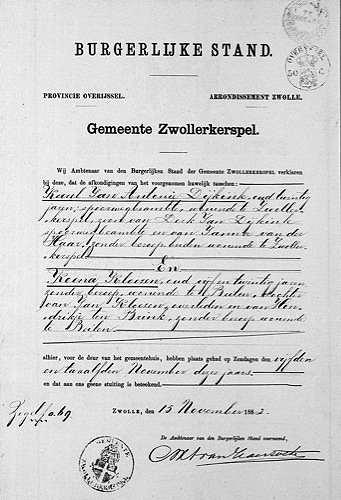 OVERYSSEL
50 C
BURGERLIJKE STAND.
PROVINCIE OVERIJSSEL. ARRONDISSEMENT ZWOLLE.
Gemeente Zwollerkerspel.
Wij Ambtenaar van den Burgerlijken Stand der Gemeente ZWOLLERKERSPEL verklaren
bij deze, dat de afkondigingen van het voorgenomen huwelijk tusschen:
Karel Jan Antonie Dijkink, oud twintig
jaren, spoorwegbeambte, wonende te Zwoller-
kerspel, zoon van Derk Jan Dijkink
spoorwegbeambte en van Janna van der
Haar, zonder beroep beiden wonende te Zwoller-
kerspel
En
Roona Kloosen, oud vijf en twintig jaren
zonder beroep wonende te Buten, dochter
van Jan Kloosen, overleden en van Hen-
drikje ten Brink, zonder beroep wonende
te Buten
alhier, voor de deur van het gemeentehuis, hebben plaats gehad op Zondagen den vijfden
en twaalfden November dezes jaars
en dat aan ons geene stuiting is beteekend.
Zegel f 0.69
ZWOLLE, den 15 November 1883.
De Ambtenaar van den Burgerlijken Stand voornoemd,
GEMEENTE